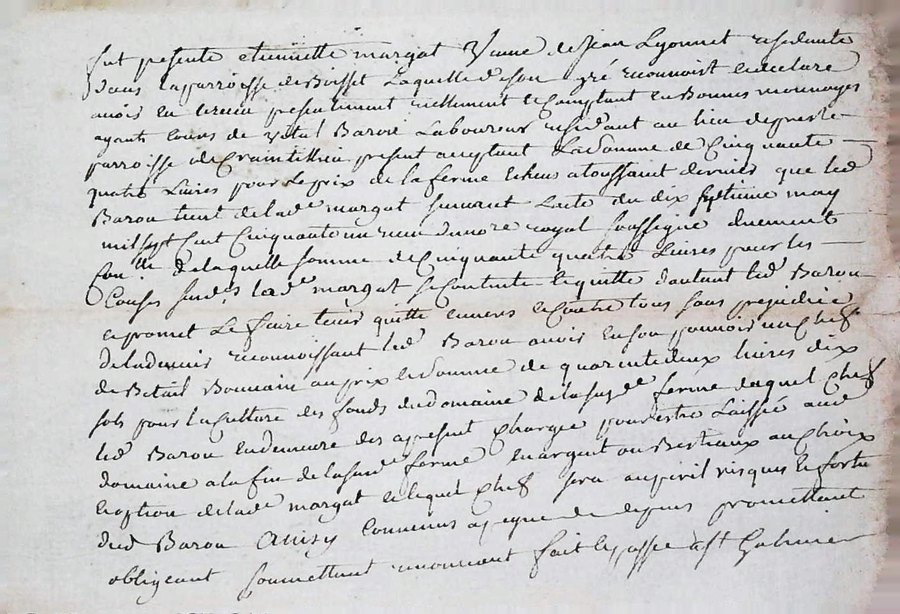 fut presente etiennette margat Vame de Jean Lyonnet residante
dans laparroisse de Boisset Laquelle deson gré reconnoist et declare
avoir eu et receu presentement reellement et Comptant en Bonnes monnoyes
ayants Cours de Vital Baron Laboureur residant au lieu de
parroisse de Craintillieu present acceptant La Somme de Cinquante
quatre Livres pour Le prix de la ferme echeue atoussaint dernier que led
Baron tient de lad.e margat suivant Lacte du dix septieme may
mil sept Cent Cinquante un receu du nore royal soussigné duement
Con.llé De laquelle somme de Cinquante quatre Livres pour les
Causes susd.s lad.e margat se Contente et quitte dautant led Baron
et promet Le faire tenir quitte envers et Contre tous sans prejudice
reconnoissant led Baron avoir en son pouvoir un Chef
de Betail Boumain au prix et Somme de quarente deux livres dix
sols pour la Culture des fonds du domaine de la susd.e ferme duquel Chef
led Baron demeure des apresent Chargé pour estre Laissé aud
domaine a la fin de la susd.e ferme en argent ou Bestiaux au Choix
et option de lad.e margat et lequel Chef sera au peril risques et fortu
dud Baron Ainsy Convenus promettant
obligeant soumettant renonceant fait et passé a st Galmier